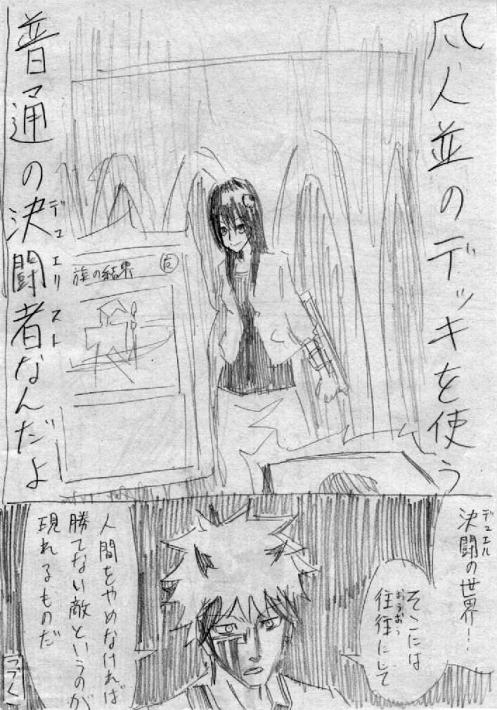 凡人並のデッキを使う
普通の決闘者なんだよ
デュエリスト
旅の結果
デュエル
決闘の世界!
そこには
往往にして
おうおう
人間をやめなければ
勝てない敵というのが
現れるものだ
つづく